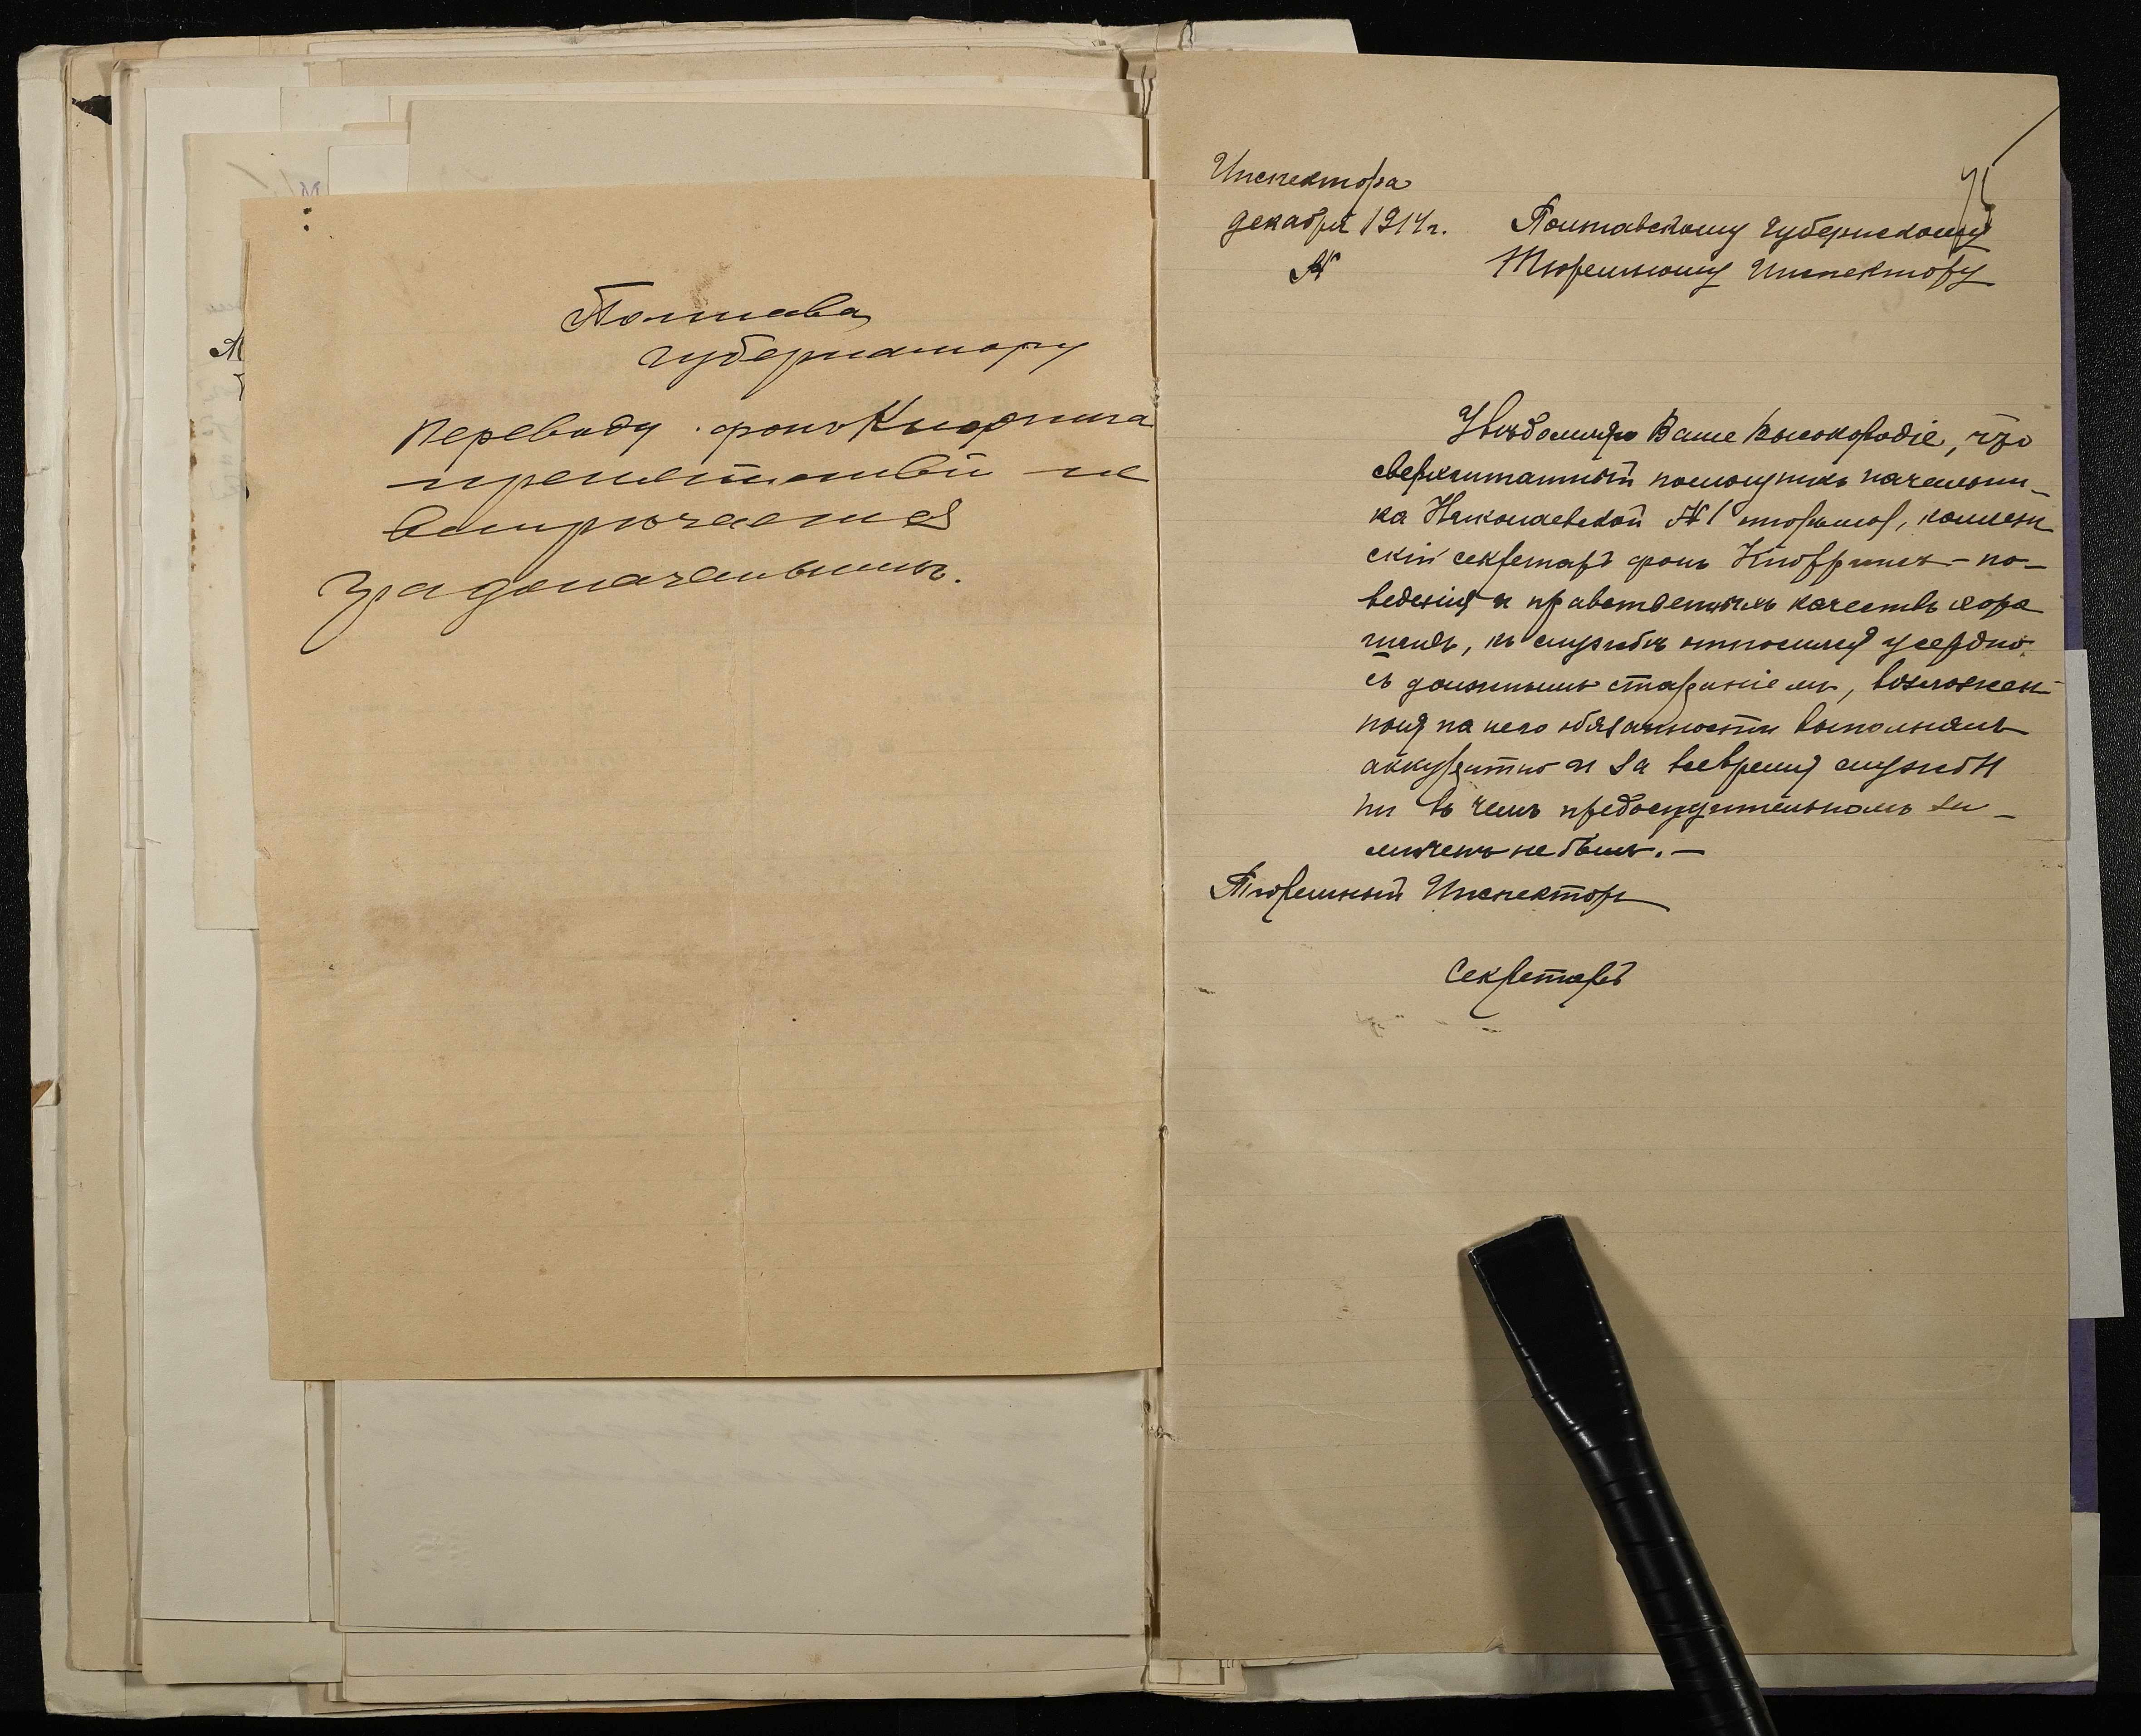 Полтава
Губернатору
Переводу фонъ Кнорринга
препятствій не
встрѣчается
Градоначальникъ.
Инспектора
декабря 1914 г.
№
Полтавскому Губернскому
Тюремному Инспектору
Увѣдомляю Ваше Высокородіе, что
сверхштатный помощникъ начальни-
ка Николаевской №1 тюрьмы, коллеж
скій секретарь фонъ Кноррингъ - по-
веденія и нравственныхъ качествъ хоро
шихъ, къ службѣ относился усердно
съ должнымъ стараніемъ, возложен
ныя на него обязанности выполнялъ
аккуратно и за все время службы
ни въ чемъ предосудительномъ за-
мѣченъ не былъ. —
Тюремный Инспекторъ
Секретарь